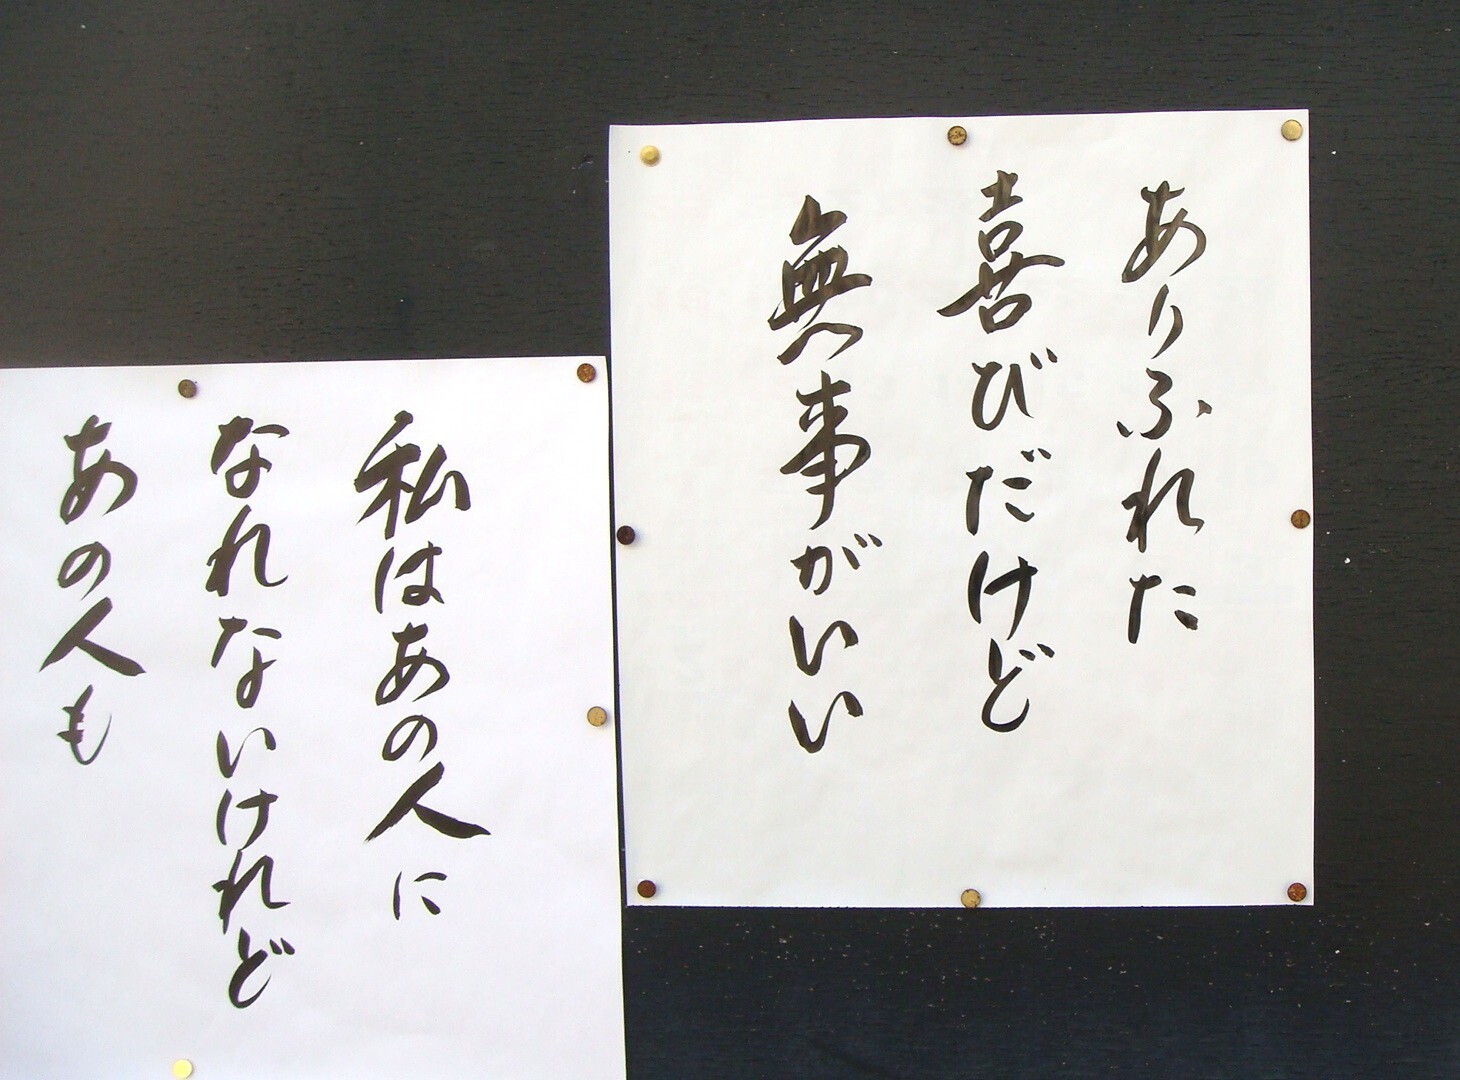 ありふれた
喜びだけど
無事がいい
私はあの人に
なれないけれど
あの人も